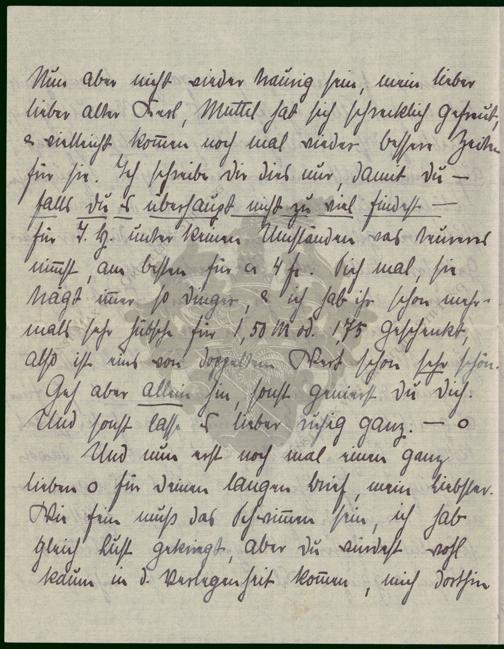 Nun aber nicht wieder traurig sein, mein lieber
lieber alter Kerl, Muttel hat sich schrecklich gefreut
& vielleicht kommen noch mal wieder bessere Zeiten
für sie. Ich schreibe Dir dies nur, damit du —
falls du es überhaupt nicht zu viel findest —
für T. H. unter keinen Umständen was teureres
nimmst, am besten für ca 4 fr. mal sie
trägt immer so Dinger, & ich hab ihr schon mehr-
mals sehr hübsche für 1,50 M od. 1,75 geschenkt,
also ist eins von doppeltem Wert schon sehr schön.
Geh aber allein hin, sonst genierst du Dich.
Und sonst lasse es lieber ruhig ganz. — o
Und nun erst noch mal einen ganz
lieben o für deinen langen Brief, mein Liebster.
Wie fein muß das Schwimmen sein, ich hab
gleich Lust gekriegt, aber du würdest wohl
kaum in d. Verlegenheit kommen, mich dorthin